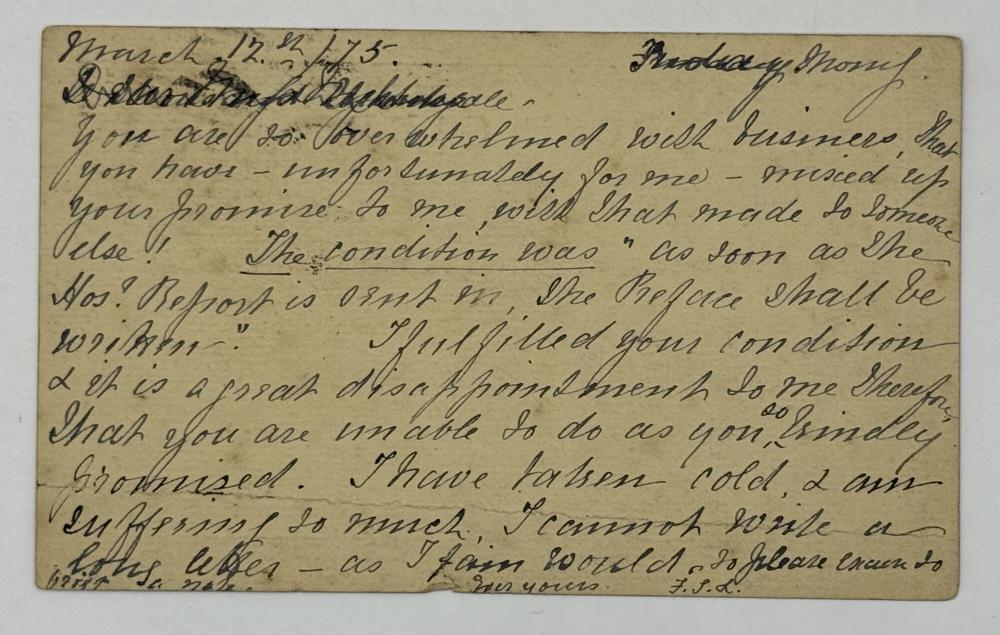 March 12th /75. Friday Morng.
Dear Miss Nightingale
You are so overwhelmed with business, that
you have – unfortunately for me – mixed up
your promise to me, with that made to someone
else! The condition was "as soon as the
Hosl. Report is sent in, the Preface shall be
written". I fulfilled your condition
& it is a great disappointment to me therefore,
that you are unable to do as you so kindly
promised. I have taken cold, & am
suffering so much, I cannot write a
long letter – as I fain would, so please excuse so
brief a note. Ever yours. F.S.L.